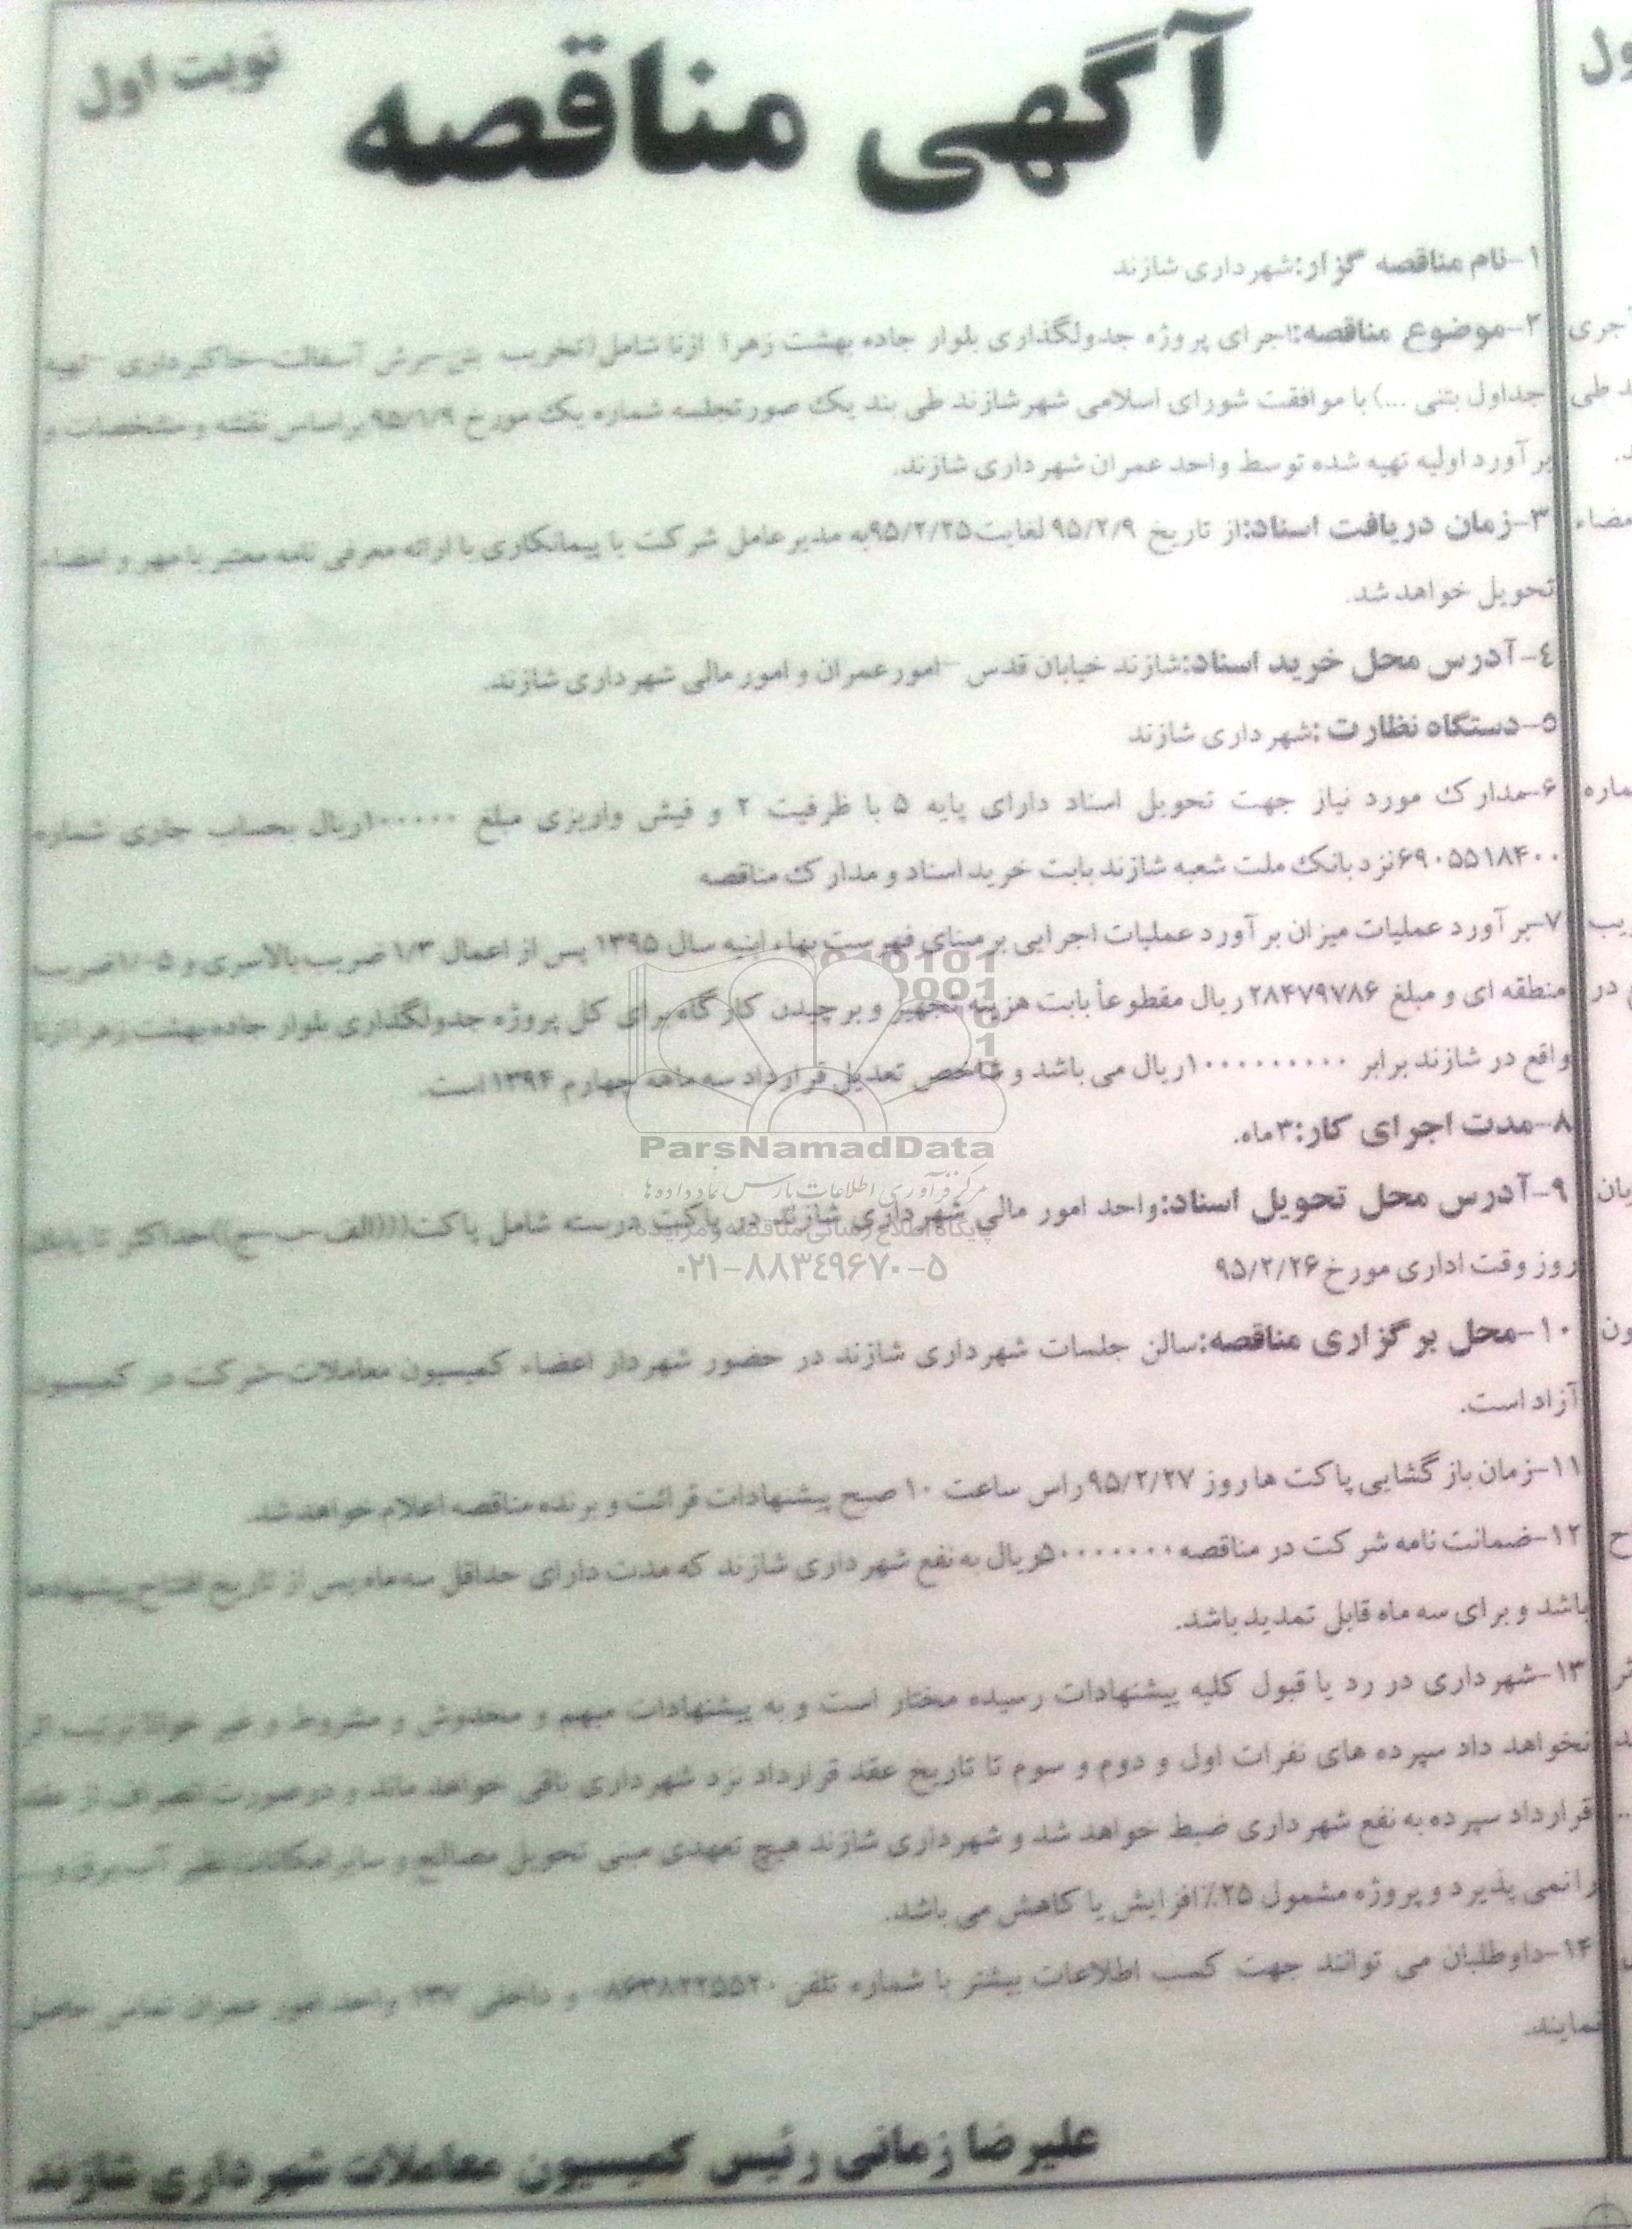 آگهی مناقصه
نوبت اول
۱-نام مناقصه گزار:شهرداری شازند
۲-موضوع مناقصه:اجرای پروژه جدولگذاری بلوار جاده بهشت زهرا ازنا شامل(تخریب بتن-برش آسفالت-خاکبرداری -تهیه
جداول بتنی ...) با موافقت شورای اسلامی شهر شازند طی بند یک صورتجلسه شماره یک مورخ ۹۵/۱/۹ براساس نقشه و مشخصات و
بر آورد اولیه تهیه شده توسط واحد عمران شهرداری شازند.
۳-زمان دریافت اسناد:از تاریخ ۹۵/۲/۹ لغایت ۹۵/۲/۲۵به مدیر عامل شرکت یا پیمانکاری با ارائه معرفی نامه معتبر با مهر و امضاء
تحویل خواهد شد.
۴-آدرس محل خرید اسناد:شازند خیابان قدس -امور عمران و امور مالی شهرداری شازند.
۵-دستگاه نظارت :شهرداری شازند
۶-مدارک مورد نیاز جهت تحویل اسناد دارای پایه ۵ با ظرفیت ۲ و فیش واریزی مبلغ ۱۰۰۰۰۰ریال بحساب جاری شماره
۶۹۰۵۵۱۸۴۰۰نزد بانک ملت شعبه شازند بابت خرید اسناد و مدارک مناقصه
۷-بر آورد عملیات میزان بر آورد عملیات اجرایی بر مبنای فهرست بهاء ابنیه سال ۱۳۹۵ پس از اعمال ۱/۳ ضریب بالاسری و ضریب
منطقه ای و مبلغ ۲۸۴۷۹۷۸۶ ریال مقطوعأ بابت هزینه تجهیز و برچیدن کارگاه برای کل پروژه جدولگذاری بلوار جاده بهشت زهرا ازنا
واقع در شازند برابر ۱۰۰۰۰۰۰۰۰۰۰ریال می باشد و شاخص تعدیل قرارداد سه ماهه چهارم ۱۳۹۴ است.
۸-مدت اجرای کار:۳ماه.
۹-آدرس محل تحویل اسناد:واحد امور مالی شهرداری شازند در پاکت دربسته شامل پاکت(((الف-ب-ج))حداکثر تا پایان
روز وقت اداری مورخ ۹۵/۲/۲۶
۱۰-محل برگزاری مناقصه:سالن جلسات شهرداری شازند در حضور شهردار اعضاء کمیسیون معاملات-شرکت در کمیسیون
آزاد است.
۱۱-زمان بازگشایی پاکت ها روز ۹۵/۲/۲۷راس ساعت ۱۰ صبح پیشنهادات قرائت و برنده مناقصه اعلام خواهد شد.
۱۲-ضمانت نامه شرکت در مناقصه ۵۰۰۰۰۰۰۰ریال به نفع شهرداری شازند که مدت دارای حداقل سه ماه پس از تاریخ افتتاح پیشنهادها
باشد و برای سه ماه قابل تمدید باشد.
۱۳-شهرداری در رد یا قبول کلیه پیشنهادات رسیده مختار است و به پیشنهادات مبهم و مخدوش و مشروط و غیر خوانا ترتیب اثر
نخواهد داد سپرده های نفرات اول و دوم و سوم تا تاریخ عقد قرارداد نزد شهرداری باقی خواهد ماند و در صورت انصراف از عقد
قرارداد سپرده به نفع شهرداری ضبط خواهد شد و شهرداری شازند هیچ تعهدی مبنی تحویل مصالح و سایر امکانات نظیر آب-برق و ...
را نمی پذیرد و پروژه مشمول ۲۵٪افزایش یا کاهش می باشد.
۱۴-داوطلبان می توانند جهت کسب اطلاعات بیشتر با شماره تلفن ۰۸۶۳۸۲۲۵۵۲۰ و داخلی ۱۳۷ واحد امور عمران تماس حاصل
نمایند.
علیرضا زمانی رئیس کمیسیون معاملات شهرداری شازند
ParsNamadData
مرکز فرآوری اطلاعات پارس نماد داده ها
پایگاه اطلاع رسانی مناقصه و مزایده
۰۲۱-۸۸۳۴۹۶۷۰-۵